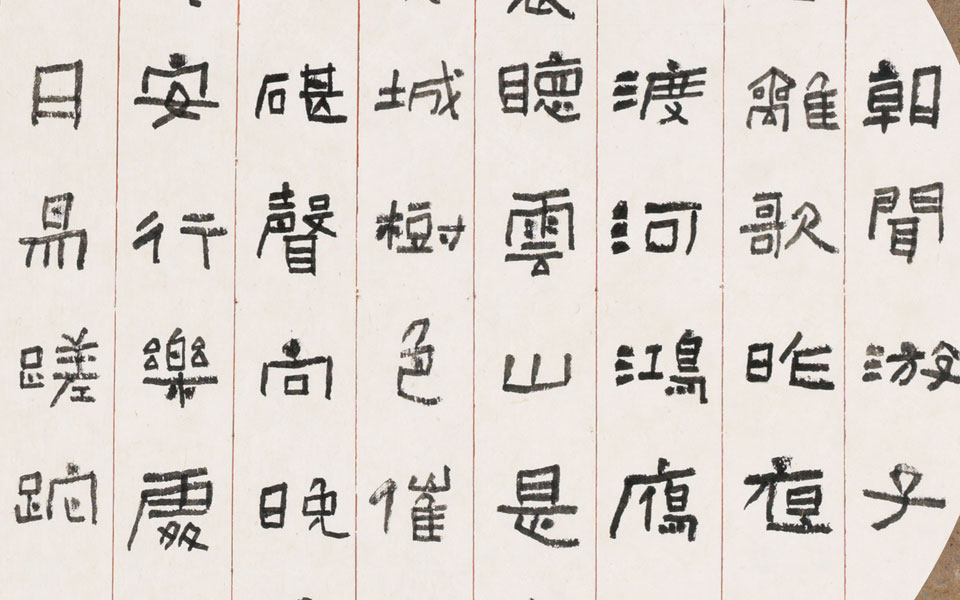 朝聞游子
離歌昨夜
渡河鴻鴈
聽雲山是
城樹色催
碪聲向晚
安行樂處
日易蹉跎